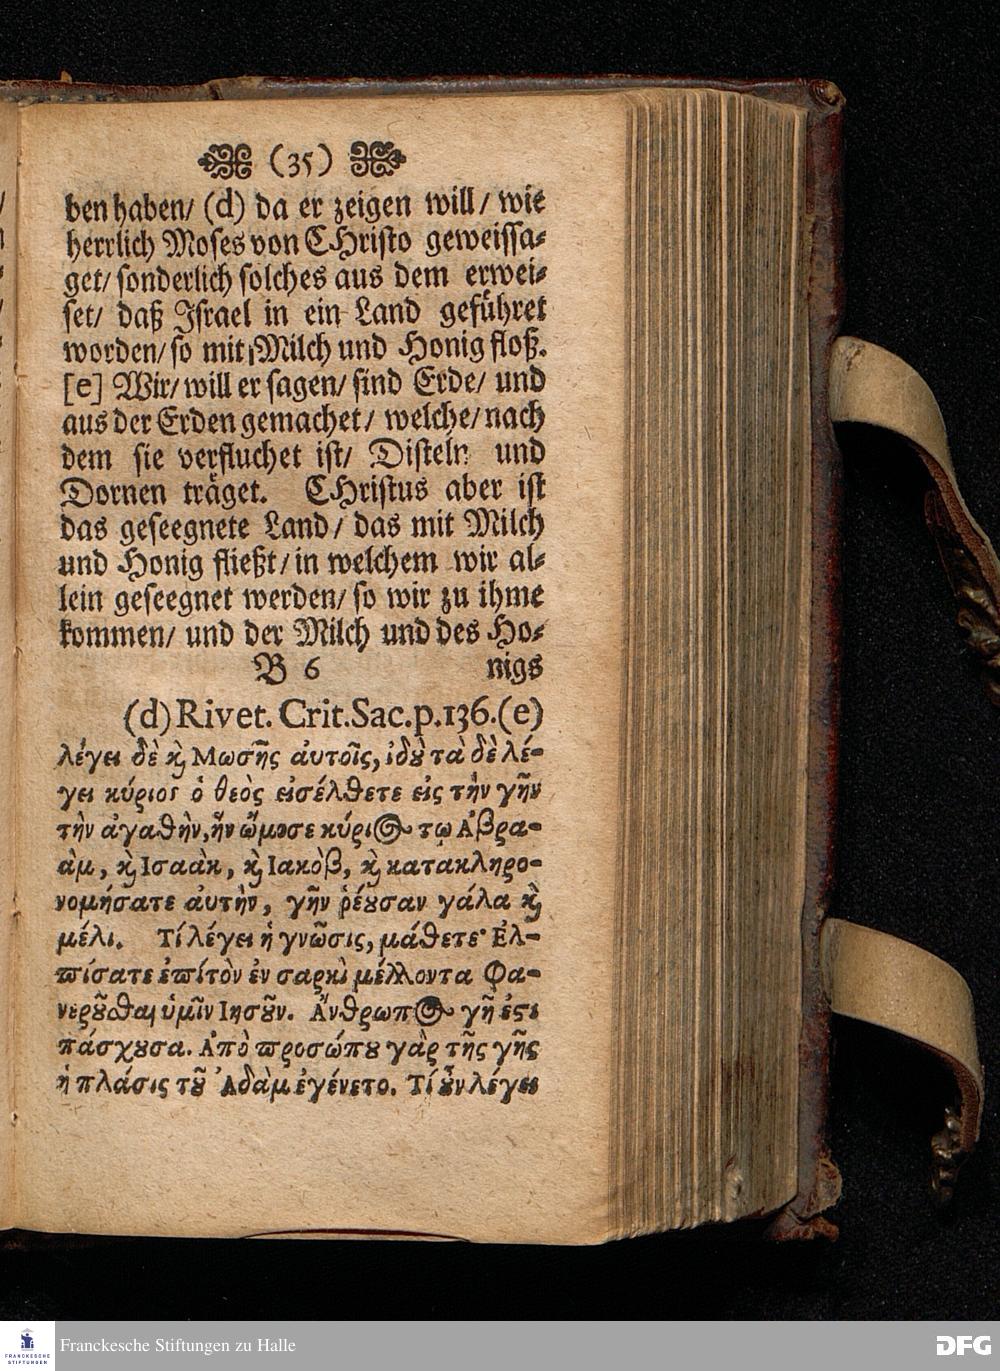 (35)
ben haben/ (d) da er zeigen will/ wie
herrlich Moses von CHristo geweissa⸗
get/ sonderlich solches aus dem erwei⸗
set/ daß Israel in ein Land geführet
worden/ so mit Milch und Honig floß.
[e] Wir/ will er sagen/ sind Erde/ und
aus der Erden gemachet/ welche/ nach
dem sie verfluchet ist/ Disteln und
Dornen träget. CHristus aber ist
das geseegnete Land/ das mit Milch
und Honig fließt/ in welchem wir al⸗
lein geseegnet werden/ so wir zu ihme
kommen/ und der Milch und des Ho⸗
B 6 nigs
(d) Rivet. Crit. Sac. p. 136. (e)
λέγει δὲ ϗ Μωσῆς ἀυτοῖς, ἰδȣ̀ τὰ δὲ λέ-
γει κύριος ὁ θεὸς εἰσέλθετε εἰς τὴν γῆν
τὴν ἀγαθὴν, ἣν ὤμοσε κύριος τῳ Ἀβρα-
ὰμ, ϗ Ισαὰκ, ϗ Ιακὸβ, ϗ κατακληρο-
νομήσατε ἀυτὴν, γῆν ῥέȣσαν γάλα ϗ
μέλι. Τί λέγει ἡ γνῶσις, μάθετε· Ἐλ-
πίσατε ἐπίτὸν ἐν σαρκὶ μέλλοντα φα-
νερȣ͂σθαι ὑμῖν Ιησȣ͂ν. Ἄνθρωπος γῆ ἐστι
πάσχȣσα. Ἀπὸ προσώπȣ γὰρ τῆς γῆς
ἡ πλάσις τȣ͂ Ἀδὰμ ἐγένετο. Τί ȣ͂ν λέγει
Franckesche Stiftungen zu Halle
FRANCKESCHE
STIFTUNGEN
DFG